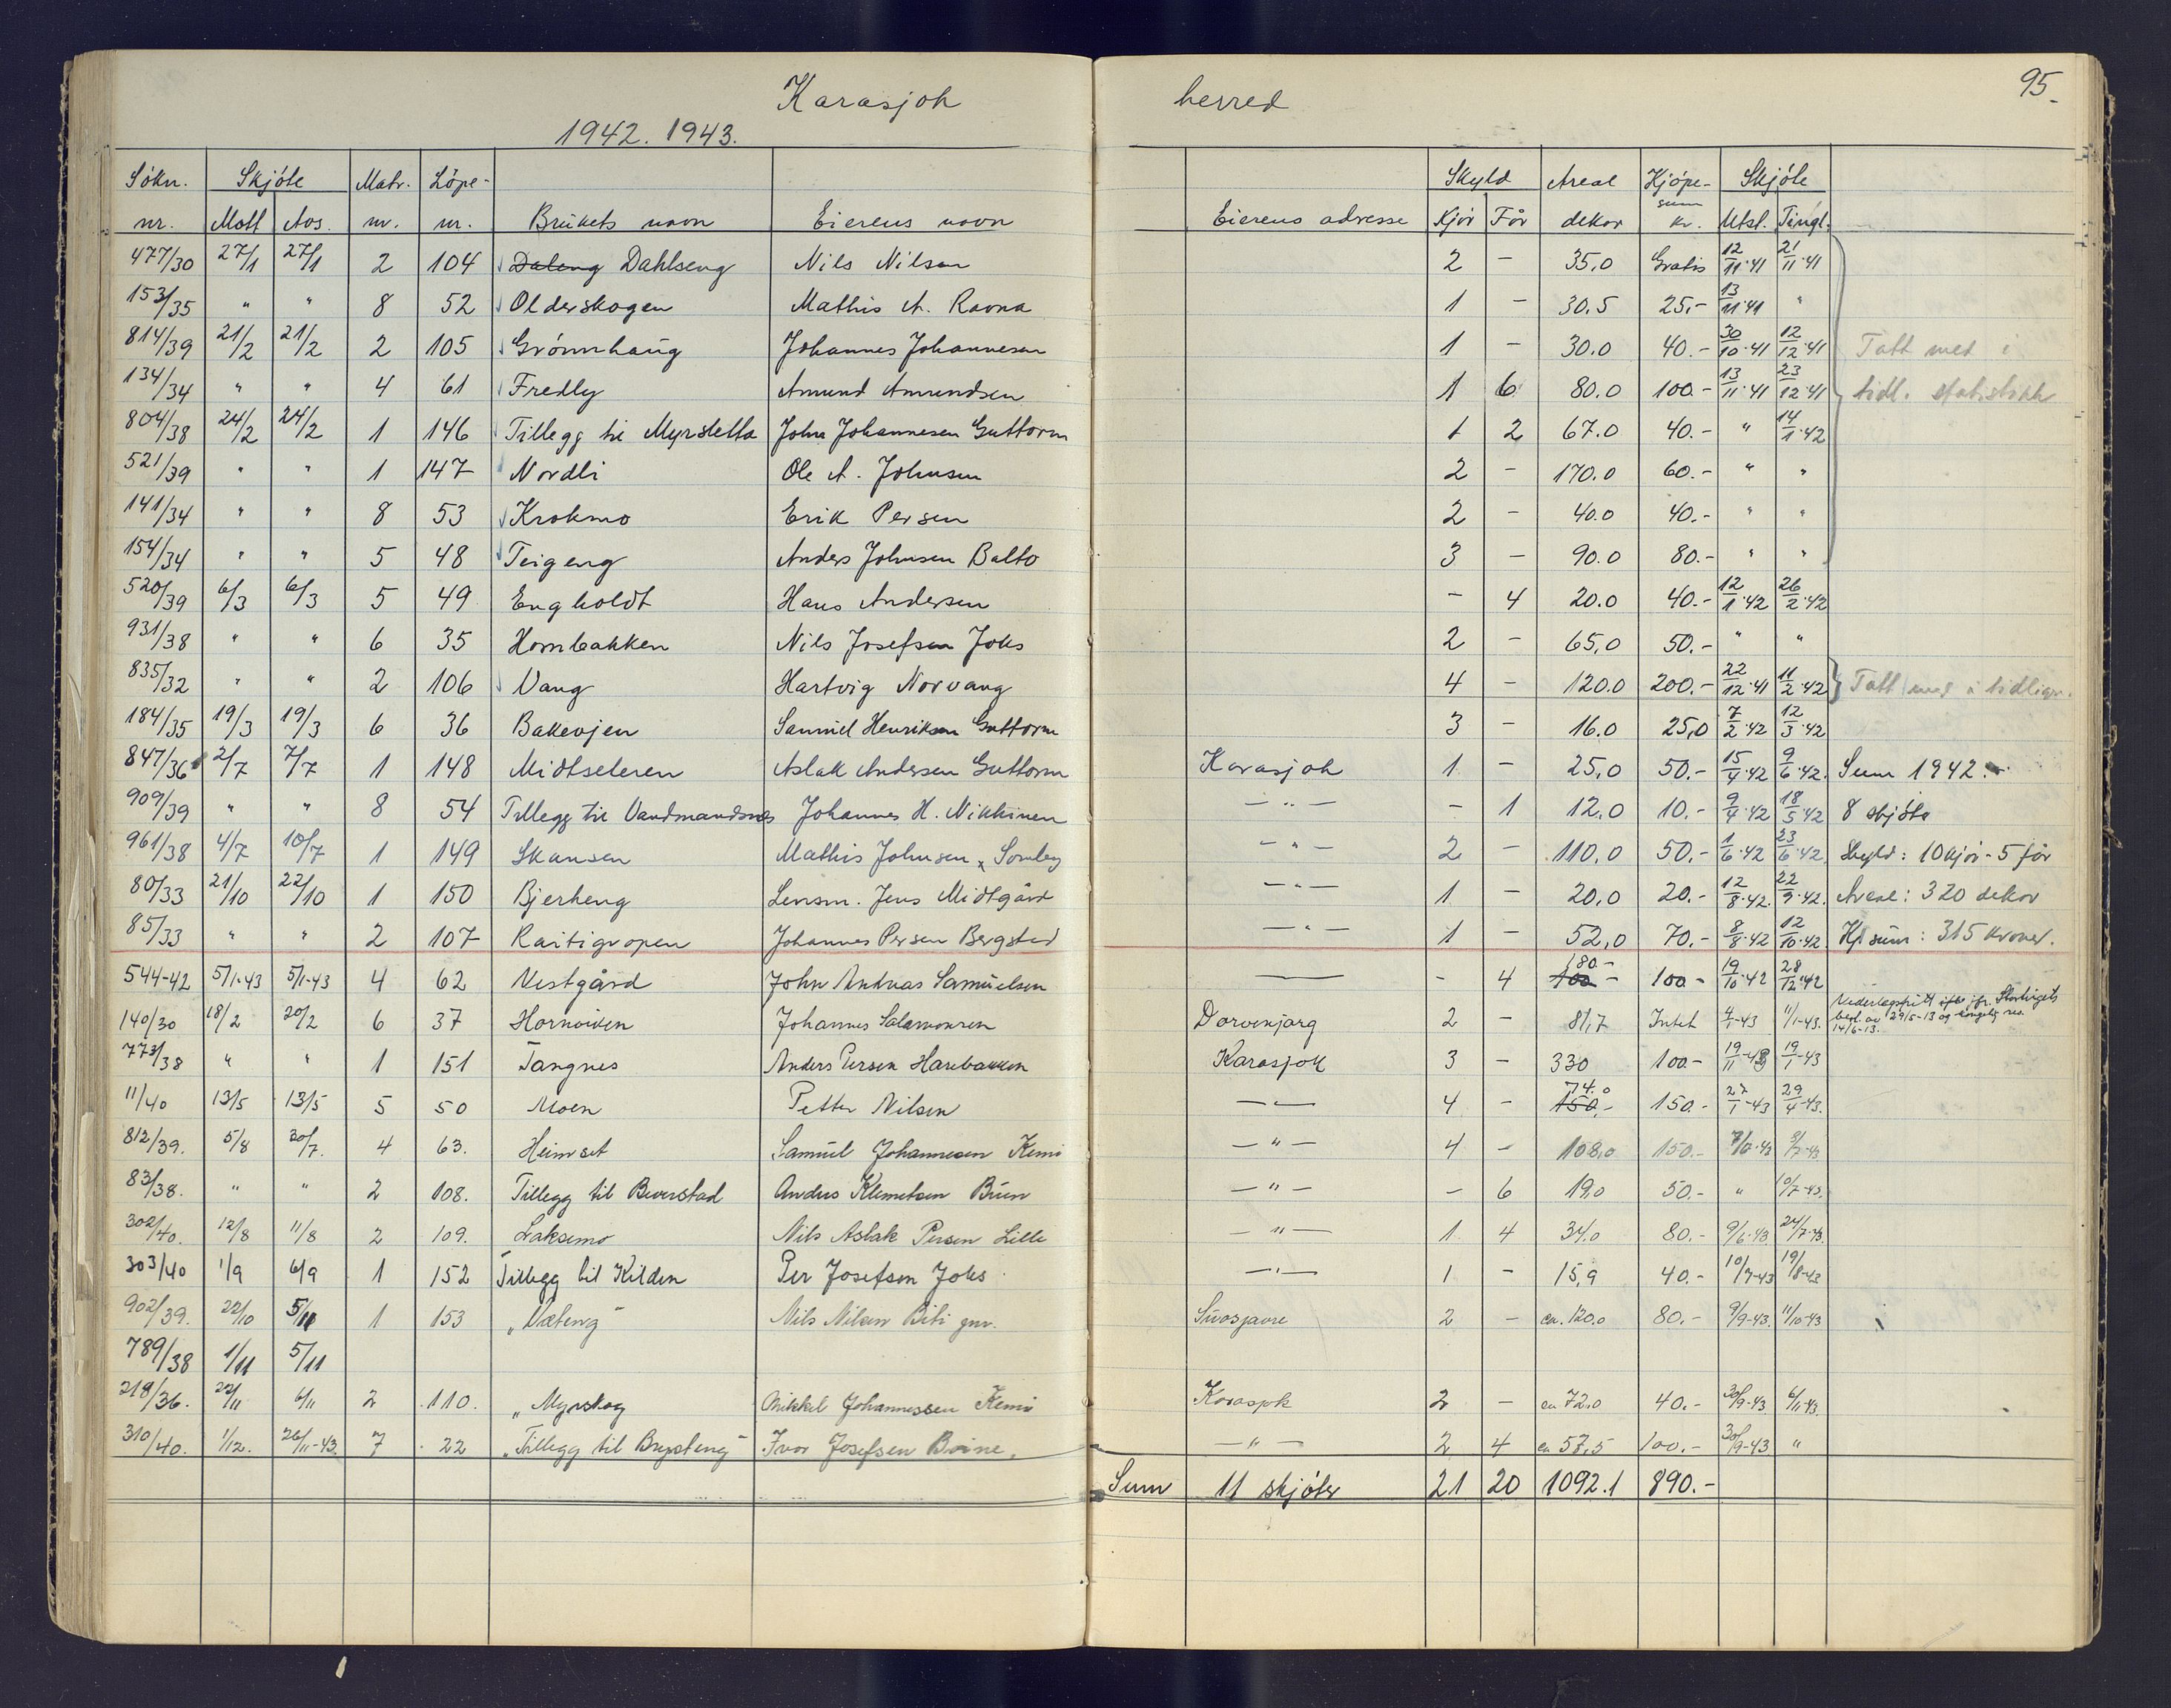 95.
Karasjok herred
1942. 1943.
Sökn. Skjöte Matr. Löpe- Skyld Areal Kjöpe- Skjöte
nr. Mott Avs. nr. nr. Brukets navn Eierens navn Eierens adresse Kjör Får dekar sum kr. Utst. Tingl.
477/30 27/1 27/1 2 104 Daleng Dahlseng Nils Nilsen 2 - 35,0 Gratis 12/11-41 21/11-41
153/35 " " 8 52 Olderskogen Mathis A. Ravna 1 - 30.5 25,- 13/11 41 "
814/39 21/2 21/2 2 105 Grönnhaug Johannes Johannesen 1 - 30.0 40.- 30/10-41 12/12-41 Tatt med i
134/34 " " 4 61 Fredly Amund Amundsen 1 6 80.0 100.- 13/11-41 23/12-41 tidl. statistikk
804/38 24/2 24/2 1 146 Tillegg til Myrsletta John Johannesen Guttorm 1 2 67.0 40.- " 14/1-42
521/39 " " 1 147 Nordli Ole A. Johnsen 2 - 170.0 60.- " "
141/34 " " 8 53 Krokmo Erik Persen 2 - 40.0 40.- " "
154/34 " " 5 48 Teigeng Anders Johnsen Balto 3 - 90.0 80.- " "
520/39 6/3 6/3 5 49 Engholdt Hans Andersen - 4 20.0 40.- 12/1-42 26/2-42
931/38 " " 6 35 Hornbakken Nils Josefsen Joks 2 - 65,0 50.- " "
835/32 " " 2 106 Vang Hartvig Norvang 4 - 120.0 200.- 22/12-41 11/2-42 Tatt med i tidligr.
184/35 19/3 19/3 6 36 Bakevjen Samuel Henriksen Guttorm 3 - 16.0 25,0 7/2-42 12/3-42
847/36 2/7 7/7 1 148 Midtseteren Aslak Andersen Guttorm Karasjok 1 - 25,0 50.- 15/4-42 9/6-42. Sum 1942.
909/39 " " 8 54 Tillegg til Vandmandsnes Johannes H. Nikkinen - " - - 1 12,0 10.- 9/4-42 18/5-42 8 skjöte
961/38 4/7 10/7 1 149 Skansen Mathis Johnsen Somby - " - 2 - 110,0 50.- 1/6-42 23/6-42. Skyld: 10 kjör - 5 får
80/33 21/10 22/10 1 150 Bjerkeng Lensm. Jens Midtgård - " - 1 - 20,0 20.- 12/8-42. 22/9-42. Areal: 320 dekar
85/33 " " 2 107 Raitigropen Johannes Persen Bergstad - " - 1 - 52,0 70.- 8/8-42 12/10-42 Kj sum: 315 kroner.
544-42 5/1-43 5/1-43 4 62 Vestgård John Andreas Samuelsen — - 4 180.- 100 - 100.- 19/10-42 28/12-42
140/30 18/2 20/2 6 37 Hornviken Johannes Salamonsen Dorvenjarg 2 - 81,7 Intet 4/1-43 11/1-43. Vederlagsfritt jfr. Stortingets
besl. av 29/5-13 og kongelig res.
14/6-13.
773/38 " " 1 151 Tangnes Anders Persen Harebakken Karasjok 3 - 330 100.- 19/11-42 19/1-43
11/40 13/5 13/5 5 50 Moen Petter Nilsen - " - 4 - 74.0 150.- 150.- 27/1-43 29/4-43.
812/39. 5/8 30/7. 4 63. Heimset Samuel Johannesen Kemi - " - 4 - 108,0 150.- 7/6-43 9/7-43.
83/38. " " 2 108. Tillegg til Beverstad Anders Klemetsen Buen - " - - 6 19,0 50.- " 10/7-43.
302/40. 12/8 11/8 2 109. Laksemo Nils Aslak Persen Lille - " - 1 4 34.0 80.- 9/6-43 24/7-43.
303/40 1/9 6/9 1 152 Tillegg til Kilden Per Josefsen Joks - " - 1 - 15,9 40.- 10/7-43 19/8-43
902/39. 22/10 5/11 1 153 „Vateng" Nils Nilsen Biti gnr. Suosjavre 2 - ca. 120.0 80.- 9/9-43. 11/10-43
789/38 1/11 5/11
218/36. 22/11 6/11 2 110. „Myrskog Mikkel Johannessen Kemi Karasjok 2 - ca 72.0 40.- 30/9-43. 6/11-43.
310/40. 1/12. 26/11-43 7 22 „Tillegg til Brusteng" Ivar Josefsen Boine. - " - 2 4 ca 57,5 100.- 30/9-43 "
Sum 11 skjöter 21 20 1092.1 890.-